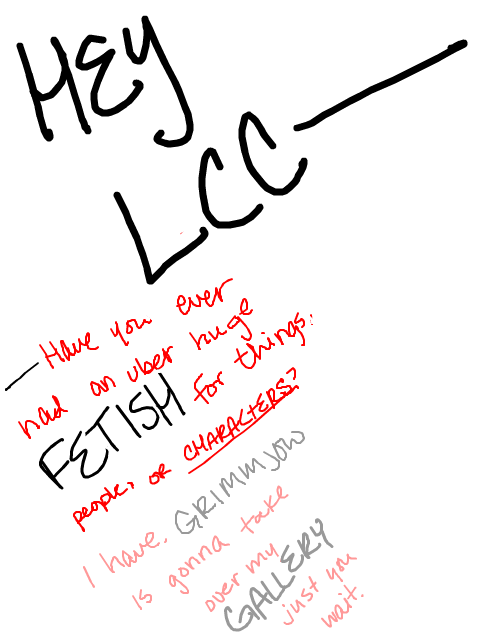 HEY
LCC—
—Have you ever
had an uber huge
FETISH for things,
people, or CHARACTERS?
I have. GRIMMJOW
is gonna take
over my
GALLERY
just you
wait.